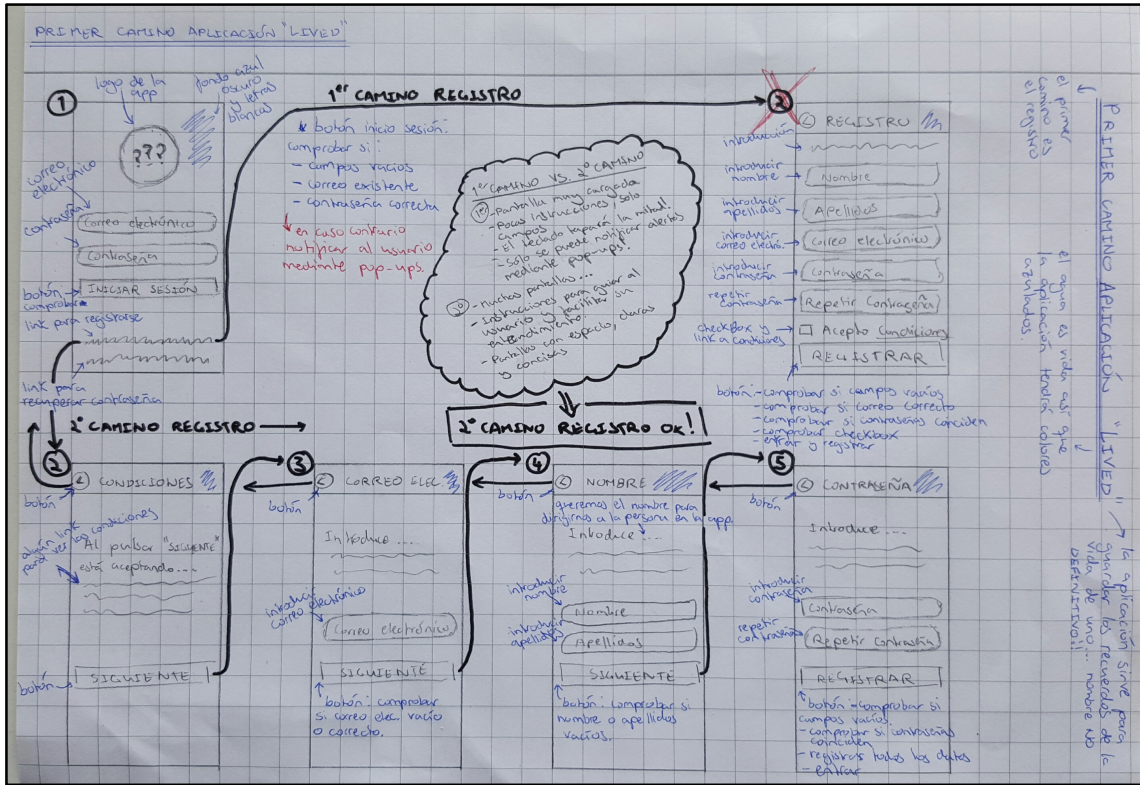 PRIMER CAMINO APLICACIÓN "LIVED"
1
logo de la
app
fondo azul
oscuro
y letras
blancas
???
correo
electrónico
contraseña
Correo electrónico
Contraseña
botón
comprobar
INICIAR SESIÓN
link para registrarse
link para
recuperar contraseña
1er CAMINO REGISTRO
* botón inicio sesión:
comprobar si:
- campos vacíos
- correo existente
- contraseña correcta
↓ en caso contrario
notificar al usuario
mediante pop-ups.
1er CAMINO VS. 2º CAMINO
1º - Pantalla muy cargada
- Pocas instrucciones, solo
campos
- El teclado tapará la mitad!
- Solo se puede notificar alertas
mediante pop-ups!
2º - muchas pantallas...
- Instrucciones para guiar al
usuario y facilitar su
entendimiento.
- Pantallas con espacio, claras
y concisas
2º CAMINO REGISTRO OK!
2
< REGISTRO
introducción
introducir
nombre
Nombre
introducir
apellidos
Apellidos
introducir
correo electró.
Correo electrónico
introducir
contraseña
Contraseña
repetir
contraseña
Repetir Contraseña
checkbox y
link a condiciones
Acepto Condiciones
REGISTRAR
botón: - comprobar si campos vacíos
- comprobar si correo correcto
- comprobar si contraseñas coinciden
- comprobar checkbox
- entrar y registrar
2º CAMINO REGISTRO
2
< CONDICIONES
botón
algún link
para ver las condiciones
Al pulsar "SIGUIENTE"
está aceptando...
botón
SIGUIENTE
3
< CORREO ELEC.
botón
Introduce...
introducir
correo electrónico
Correo electrónico
SIGUIENTE
botón: comprobar
si correo elec. vacío
o correcto.
4
< NOMBRE
botón
queremos el nombre para
dirigirnos a la persona en la app.
Introduce...
introducir
nombre
Nombre
introducir
apellidos
Apellidos
SIGUIENTE
botón: comprobar si
nombre o apellidos
vacíos.
5
< CONTRASEÑA
botón
Introduce...
introducir
contraseña
Contraseña
repetir
contraseña
Repetir Contraseña
REGISTRAR
botón - comprobar si
campos vacíos.
- comprobar si contraseñas
coinciden
- registrar todos los datos
- entrar
PRIMER CAMINO APLICACIÓN "LIVED"
el primer
camino es
el registro
el agua es vida así que
la aplicación tendrá colores
azulados.
la aplicación sirve para
guardar los recuerdos de la
vida de uno... nombre NO
DEFINITIVO!!